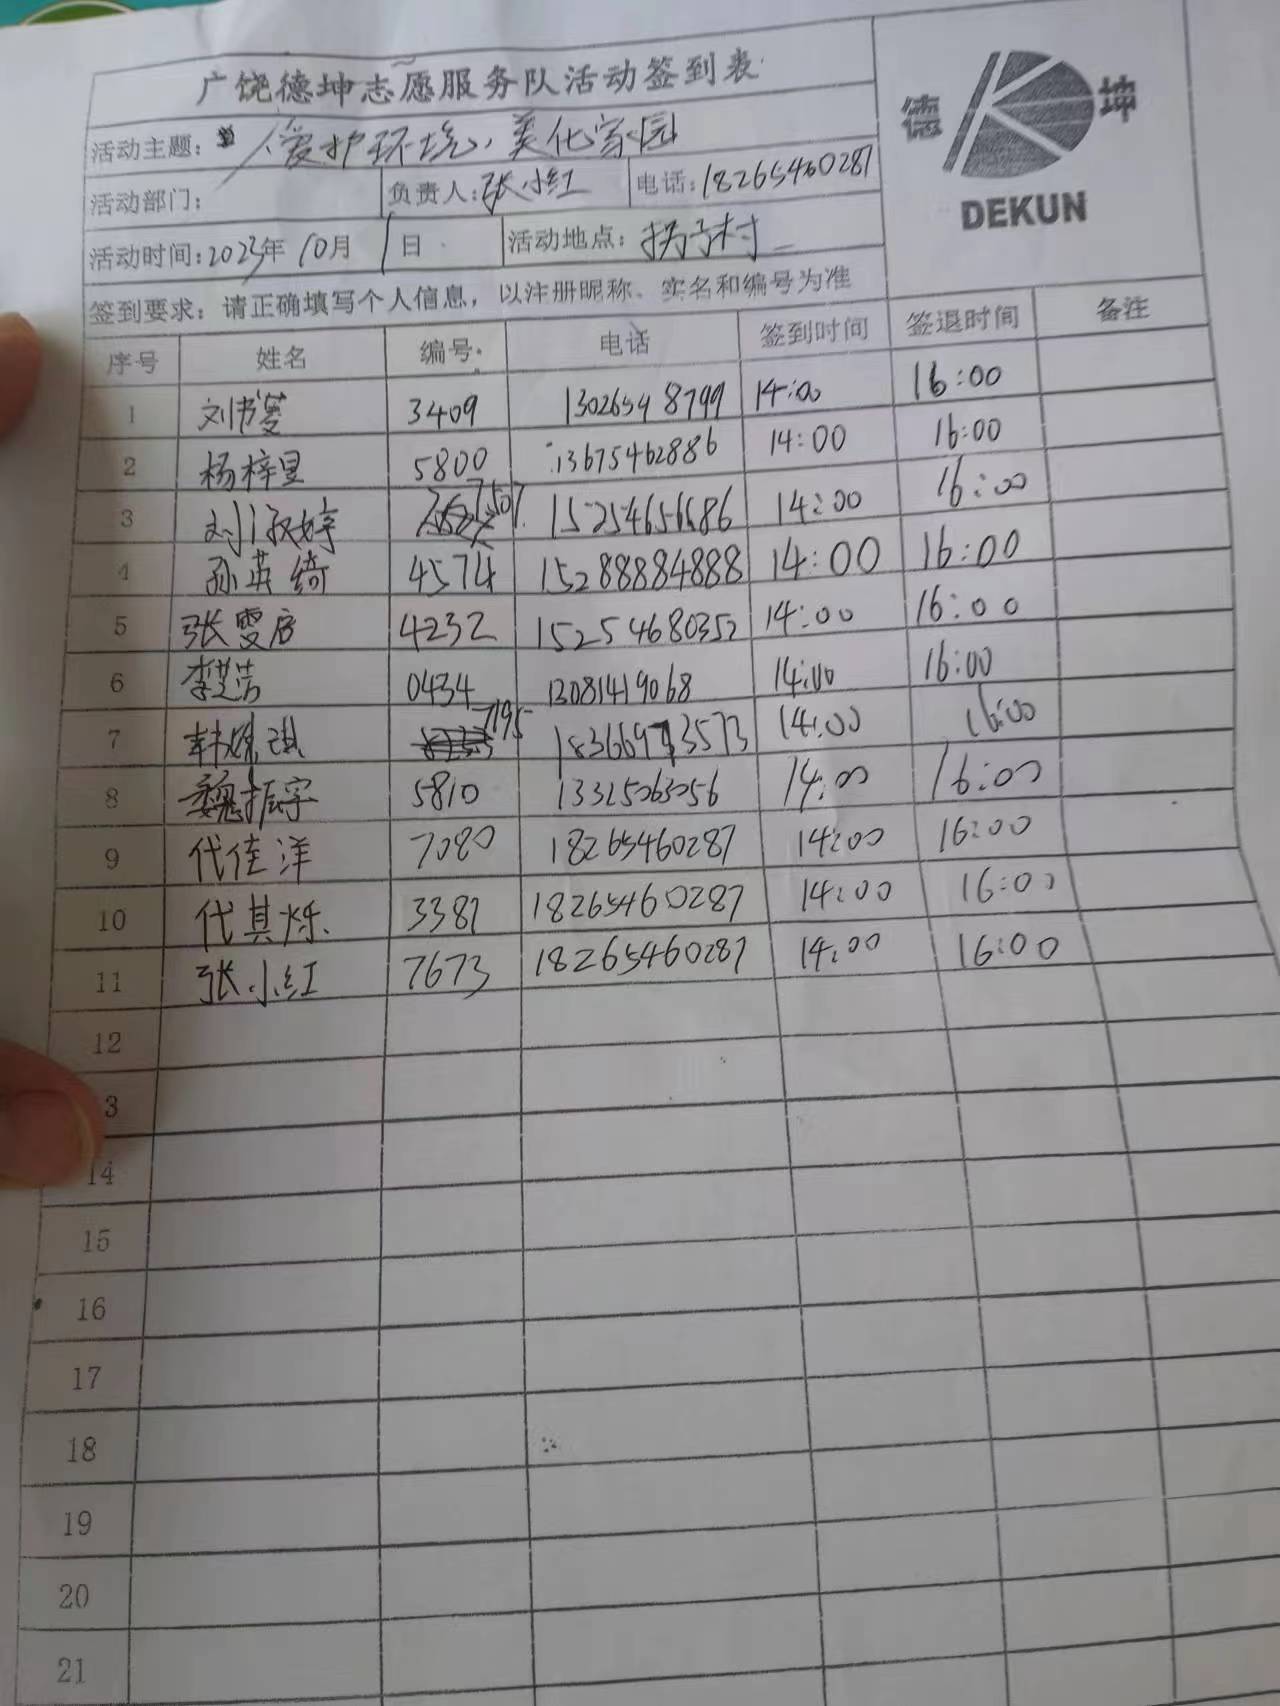 广饶德坤志愿服务队活动签到表
德 坤
DEKUN
活动主题: 爱护环境、美化家园
活动部门: 负责人: 张小红 电话: 18265460287
活动时间: 2023年 10月 1日 活动地点: 拐子村
签到要求: 请正确填写个人信息, 以注册昵称、实名和编号为准
序号 姓名 编号 电话 签到时间 签退时间 备注
1 刘书蔓 3409 13026548799 14:00 16:00
2 杨梓昱 5800 13675462886 14:00 16:00
3 刘 婷 7507 15254656686 14:00 16:00
4 孙英绮 4574 15288884888 14:00 16:00
5 张雯启 4232 15254680352 14:00 16:00
6 李芸浩 0434 13081419068 14:00 16:00
7 韩 琪 7195 18366973573 14:00 16:00
8 魏振宇 5810 13325063056 14:00 16:00
9 代佳洋 7080 18265460287 14:00 16:00
10 代其烁 3387 18265460287 14:00 16:00
11 张小红 7673 18265460287 14:00 16:00
12
3
14
15
16
17
18
19
20
21